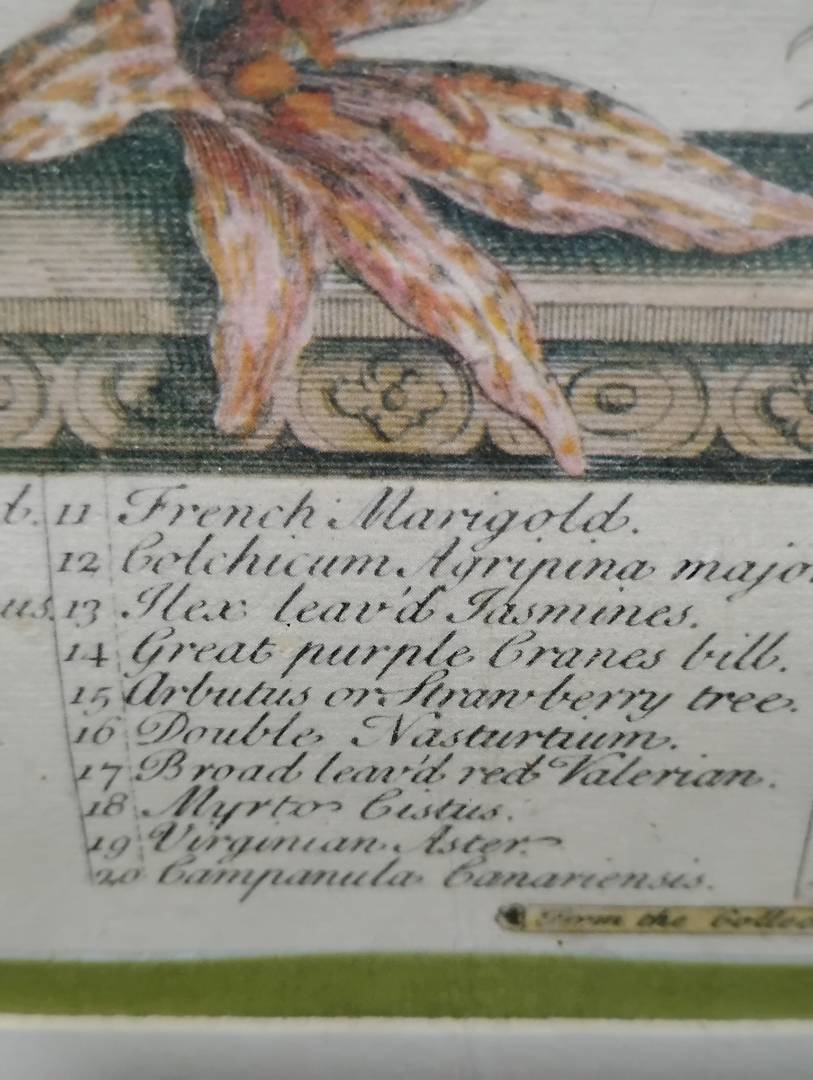 11 French Marigold.
12 Colchicum Agripina major
13 Ilex leav'd Jasmines.
14 Great purple Cranes bill.
15 Arbutus or Strawberry tree.
16 Double Nasturtium.
17 Broad leav'd red Valerian.
18 Myrto Cistus.
19 Virginian Aster.
20 Campanula Canariensis.
From the Collec